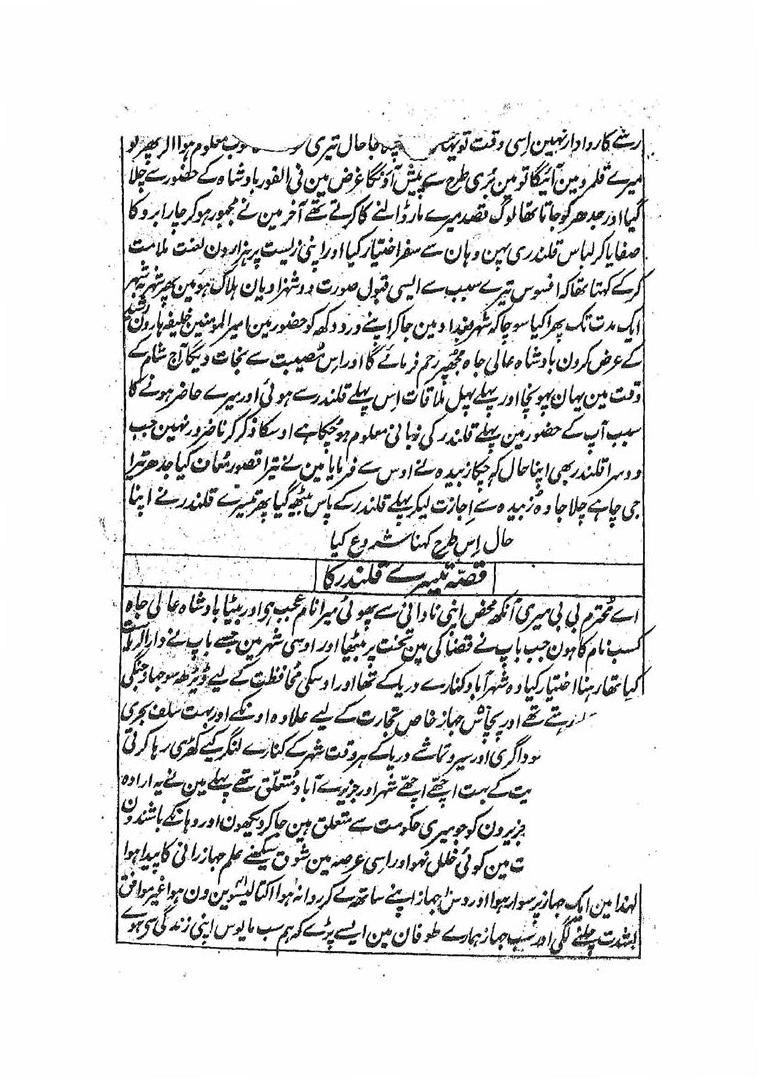 رہنے کا روادار نہین اسی وقت تو یہان جا حال تیری معلوم ہوا اگر پھر تو
میرے قلمرو مین آئیگا تو مین بُری طرح سے پیش آؤنگا غرض مین فی الفور بادشاہ کے حضور سے چلا
گیا اور جدھر کو جاتا تھا لوگ قصد میرے مار ڈالنے کا کرتے تھے آخر مین نے مجبور ہو کر چار ابرو کا
صفایا کر لباس قلندری پہن وہان سے سفر اختیار کیا اور اپنی زلیست پر ہزارون لعنت ملامت
کر کے کہتا تھا کہ افسوس تیرے سبب سے ایسی قبول صورت دو شہزادیان ہلاک ہوئین پھر شہر بہ شہر
ایک مدت تک پھرا کیا سوچا کہ شہر بغداد مین جا کر اپنے درد دکھ کو حضور مین امیر المومنین خلیفہ ہارون رشید
کے عرض کرون بادشاہ عالی جاہ مجھپر رحم فرمائے گا اور اس مُصیبت سے نجات دیگا آج شام کے
وقت مین یہان پہونچا اور پہلے پہل ملاقات اس پہلے قلندر سے ہوئی اور میرے حاضر ہونے کا
سبب آپ کے حضور مین پہلے قلندر کی زبانی معلوم ہو چکا ہے اوسکا ذکر کرنا ضرور نہین جب
دوسرا قلندر بھی اپنا حال کہہ چکا زبیدہ نے اوس سے فرمایا مین نے تیرا قصور مُعاف کیا جدھر تیرا
جی چاہے چلا جا وہ زُبیدہ سے اجازت لیکر پہلے قلندر کے پاس بیٹھ گیا پھر تیسرے قلندر نے اپنا
حال اِس طرح کہنا شروع کیا
قصّہ تیسرے قلندر کا
اے مُحترم بی بی میری آنکھ محض اپنی نادانی سے پھوٹی میرا نام عجب ہی اور بیٹا بادشاہ عالی جاہ
کسب نام کا ہون جب باپ نے قضا کی مین تخت پر بیٹھا اور اوسی شہر مین جسے باپ نے دار الریاست
کیا تھا رہنا اختیار کیا وہ شہر آباد کنارے دریا کے تھا اور اوسکی مُحافظت کے لیے ڈیڑھ سو جہاز جنگی
رہتے تھے اور پچاس جہاز خاص تجارت کے لیے علاوہ اونکے اور بہت سلف بحری
وداگری اور سیر و تماشے دریا کے ہر وقت شہر کے کنارے لنگر کیے کھڑی رہا کرتی
یت کے بہت اچھّے اچھّے شہر اور جزیرے آباد مُتعلّق تھے پہلے مین نے یہ ارادہ
جزیرون کو جو میری حکومت سے متعلق ہین جا کر دیکھون اور وہانکے باشندون
ت مین کوئی خلل نہو اور اسی عرصہ مین شوق سیکھنے علم جہاز رانی کا پیدا ہوا
لہذا مین ایک جہاز پر سوار ہوا اور دس جہاز اپنے ساتھ لے کر روانہ ہوا اکتالیسوین دن ہوا غیر موافق
بشدت چلنے لگی اور سب جہاز ہمارے طوفان مین ایسے پڑے کہ ہم سب مایوس اپنی زندگی سی ہوے